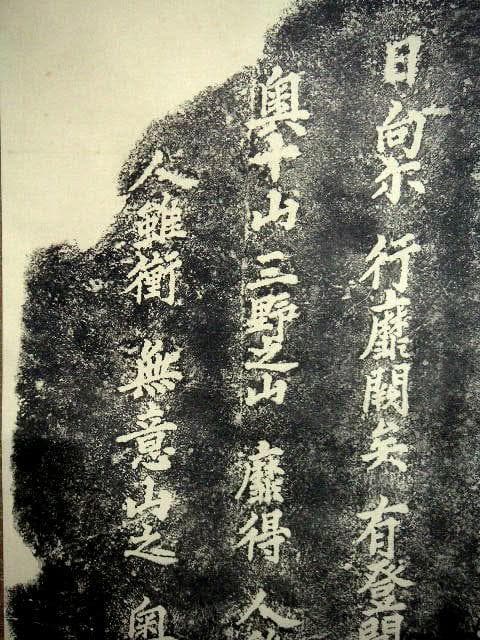 日向尓 行靡闕矣 有登
奥十山 三野之山 靡得 人
人雖衝 無意山之 奥